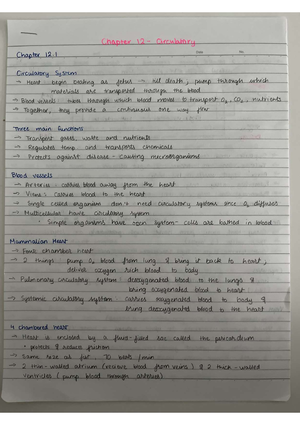 Chapter 12 - Circulatory
Chapter 12.1
Circulatory System
→ Heart begin beating as fetus → till death, pump through which
materials are transported through the blood
→ Blood vessels tubes through which blood moves to transport O₂, CO₂, nutrients
→ Together, they provide a continuous one way flow
Three main functions
→ Transport gases, waste and nutrients
→ Regulates temp and transports chemicals
→ Protects against disease - causing microorganisms
Blood vessels
→ Arteries - carries blood away from the heart
→ Veins : carries blood to the heart
→ Single celled organism don't need circulatory systems since O₂ diffuses
→ Multicellular have circulatory system
• Simple organisms have open system - cells are bathed in blood
Mammalian Heart
→ Four chambered heart
→ 2 things : pump O₂ blood from lung & bring it back to heart,
deliver oxygen rich blood to body
→ Pulmonary circulatory system : deoxygenated blood to the lungs &
bring oxygenated blood to heart
→ Systemic circulatory system : carries oxygenated blood to body &
bring deoxygenated blood to the heart
4 chambered heart
→ Heart is encased by a fluid-filled sac called the pericardium
• protects & reduce friction
→ Same size as fist, 70 beats /min
→ 2 thin-walled atrium (receives blood from veins) & 2 thick-walled
ventricles (pump blood through arteries)